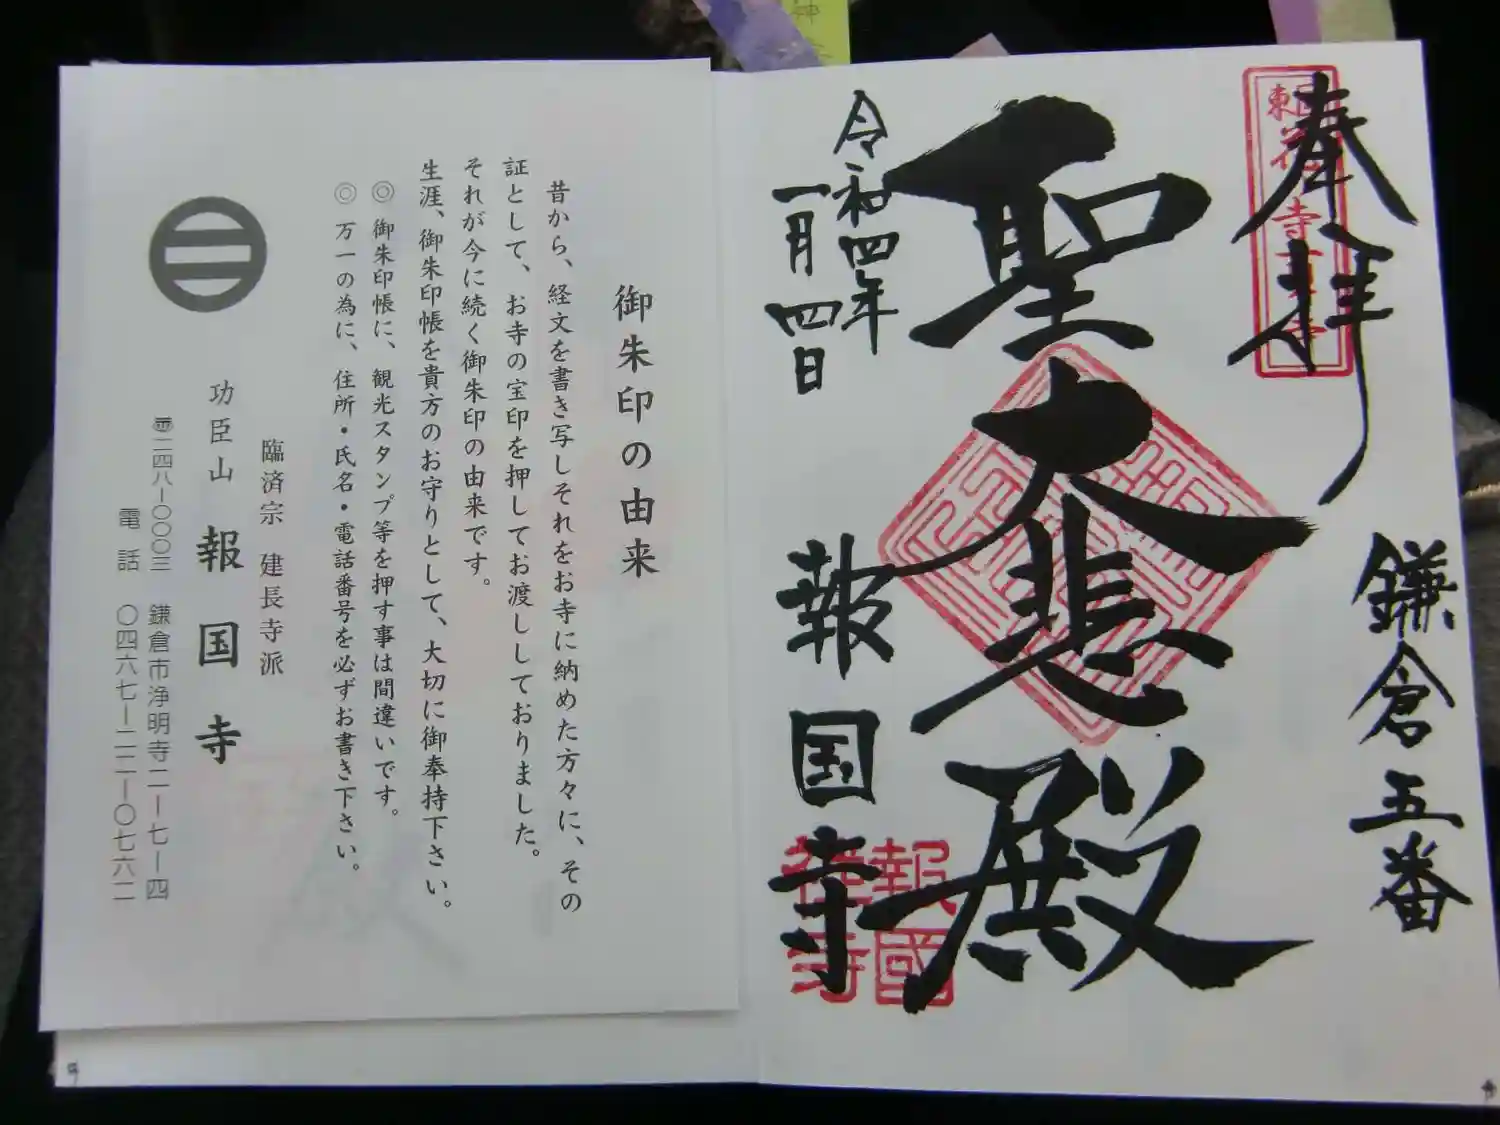 奉拝
鎌倉五番
聖大悲殿
令和四年
一月四日
報国寺
報國
禅寺
御朱印の由来
昔から、経文を書き写しそれをお寺に納めた方々に、その
証として、お寺の宝印を押してお渡ししておりました。
それが今に続く御朱印の由来です。
生涯、御朱印帳を貴方のお守りとして、大切に御奉持下さい。
◎ 御朱印帳に、観光スタンプ等を押す事は間違いです。
◎ 万一の為に、住所・氏名・電話番号を必ずお書き下さい。
臨済宗 建長寺派
功臣山 報国寺
〒二四八ー〇〇〇三 鎌倉市浄明寺二ー七ー四
電話 〇四六七ー二二ー〇七六二